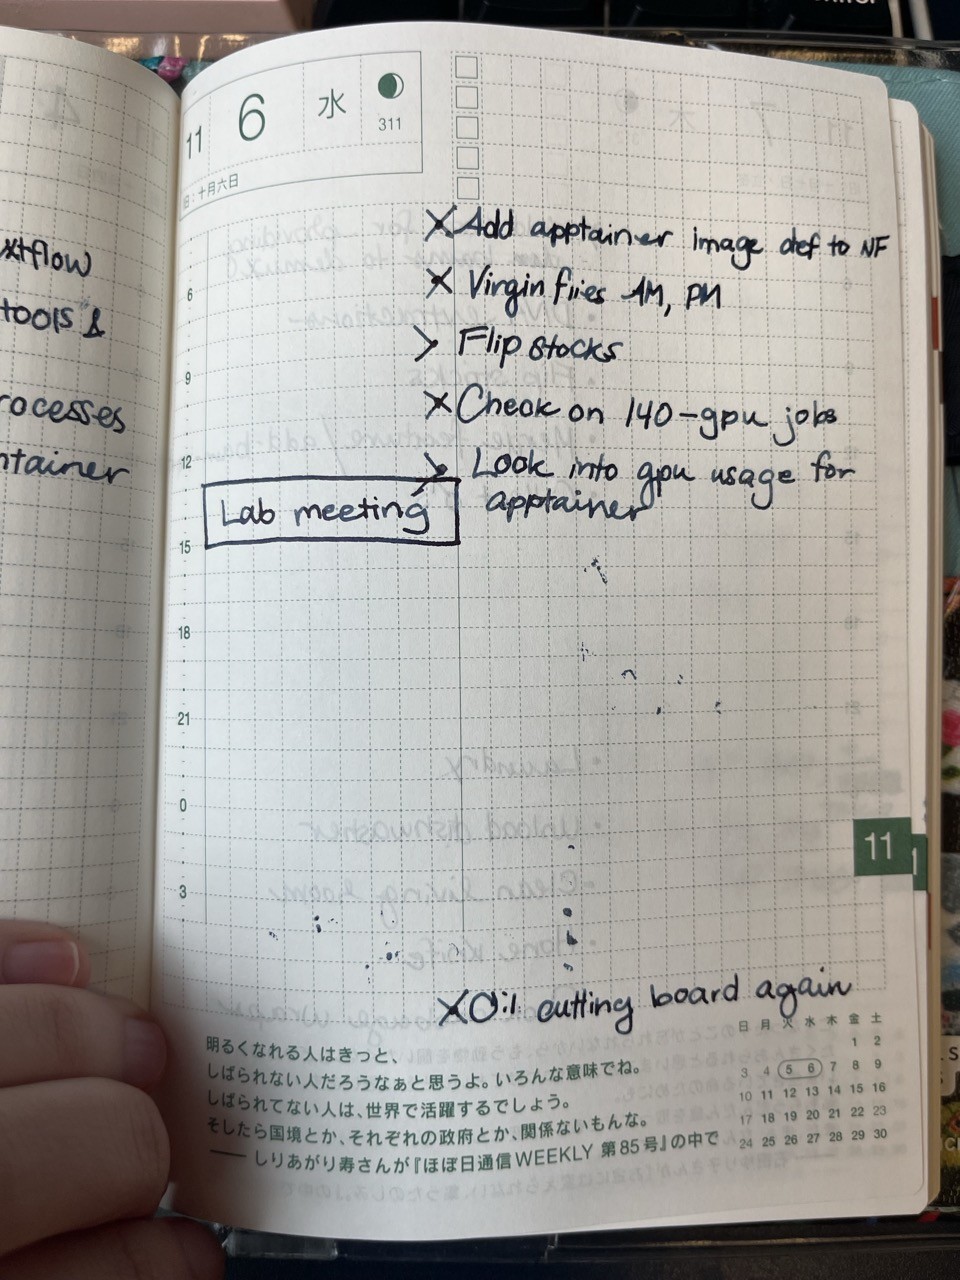 11 6 水
311
旧:十月六日
xtflow
tools &
rocesses
ntainer
X Add apptainer image def to NF
X Virgin flies AM, PM
> Flip stocks
X Check on 140-gpu jobs
> Look into gpu usage for
apptainer
Lab meeting
6
9
12
15
18
21
0
3
11
X Oil cutting board again
明るくなれる人はきっと、
しばられない人だろうなぁと思うよ。いろんな意味でね。
しばられてない人は、世界で活躍するでしょう。
そしたら国境とか、それぞれの政府とか、関係ないもんな。
—— しりあがり寿さんが『ほぼ日通信WEEKLY 第85号』の中で
日 月 火 水 木 金 土
1 2
3 4 5 6 7 8 9
10 11 12 13 14 15 16
17 18 19 20 21 22 23
24 25 26 27 28 29 30